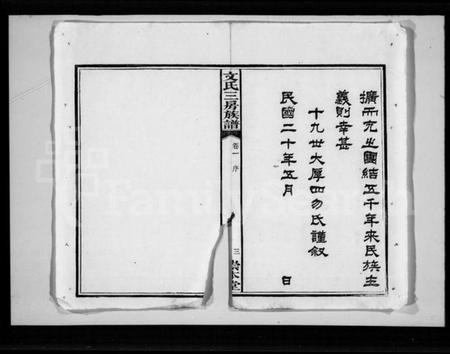 擴而充之團結五千年來民族主
義則幸甚
十九世大厚四勿氏謹叙
民國二十年五月 日
文氏三房族譜
卷一 序
三
本堂
FamilySearch